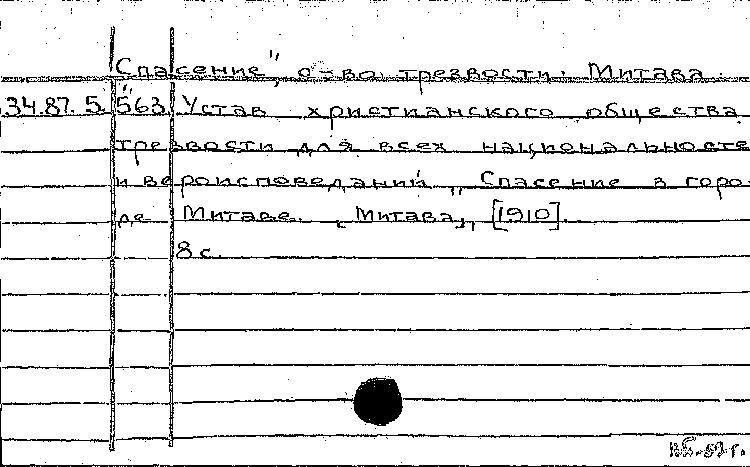 Спасение", о-во трезвости. Митава.
34.87.5.563 Устав христианского общества
трезвости для всех национальносте
и вероисповеданий „Спасение в горо-
де Митаве. [Митава], [1910].
8 с.